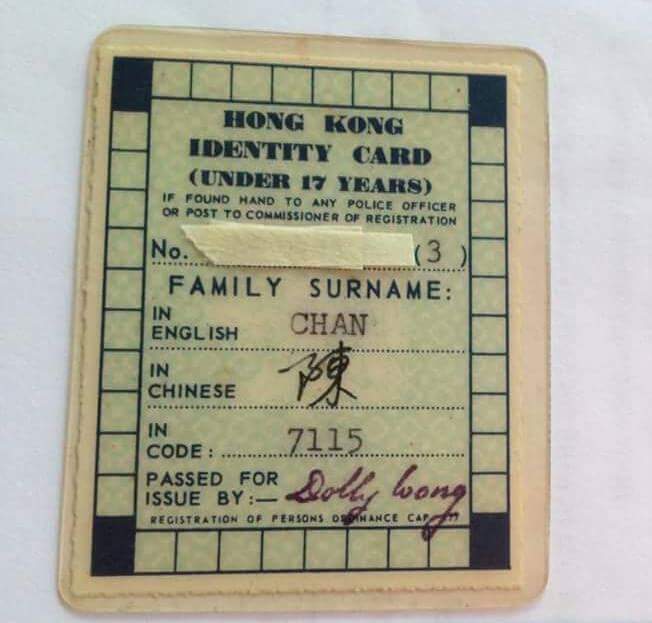 HONG KONG
IDENTITY CARD
(UNDER 17 YEARS)
IF FOUND HAND TO ANY POLICE OFFICER
OR POST TO COMMISSIONER OF REGISTRATION
No. (3)
FAMILY SURNAME:
IN
ENGLISH CHAN
IN
CHINESE 陳
IN
CODE: 7115
PASSED FOR
ISSUE BY:— Dolly Wong
REGISTRATION OF PERSONS ORDINANCE CAP. 177